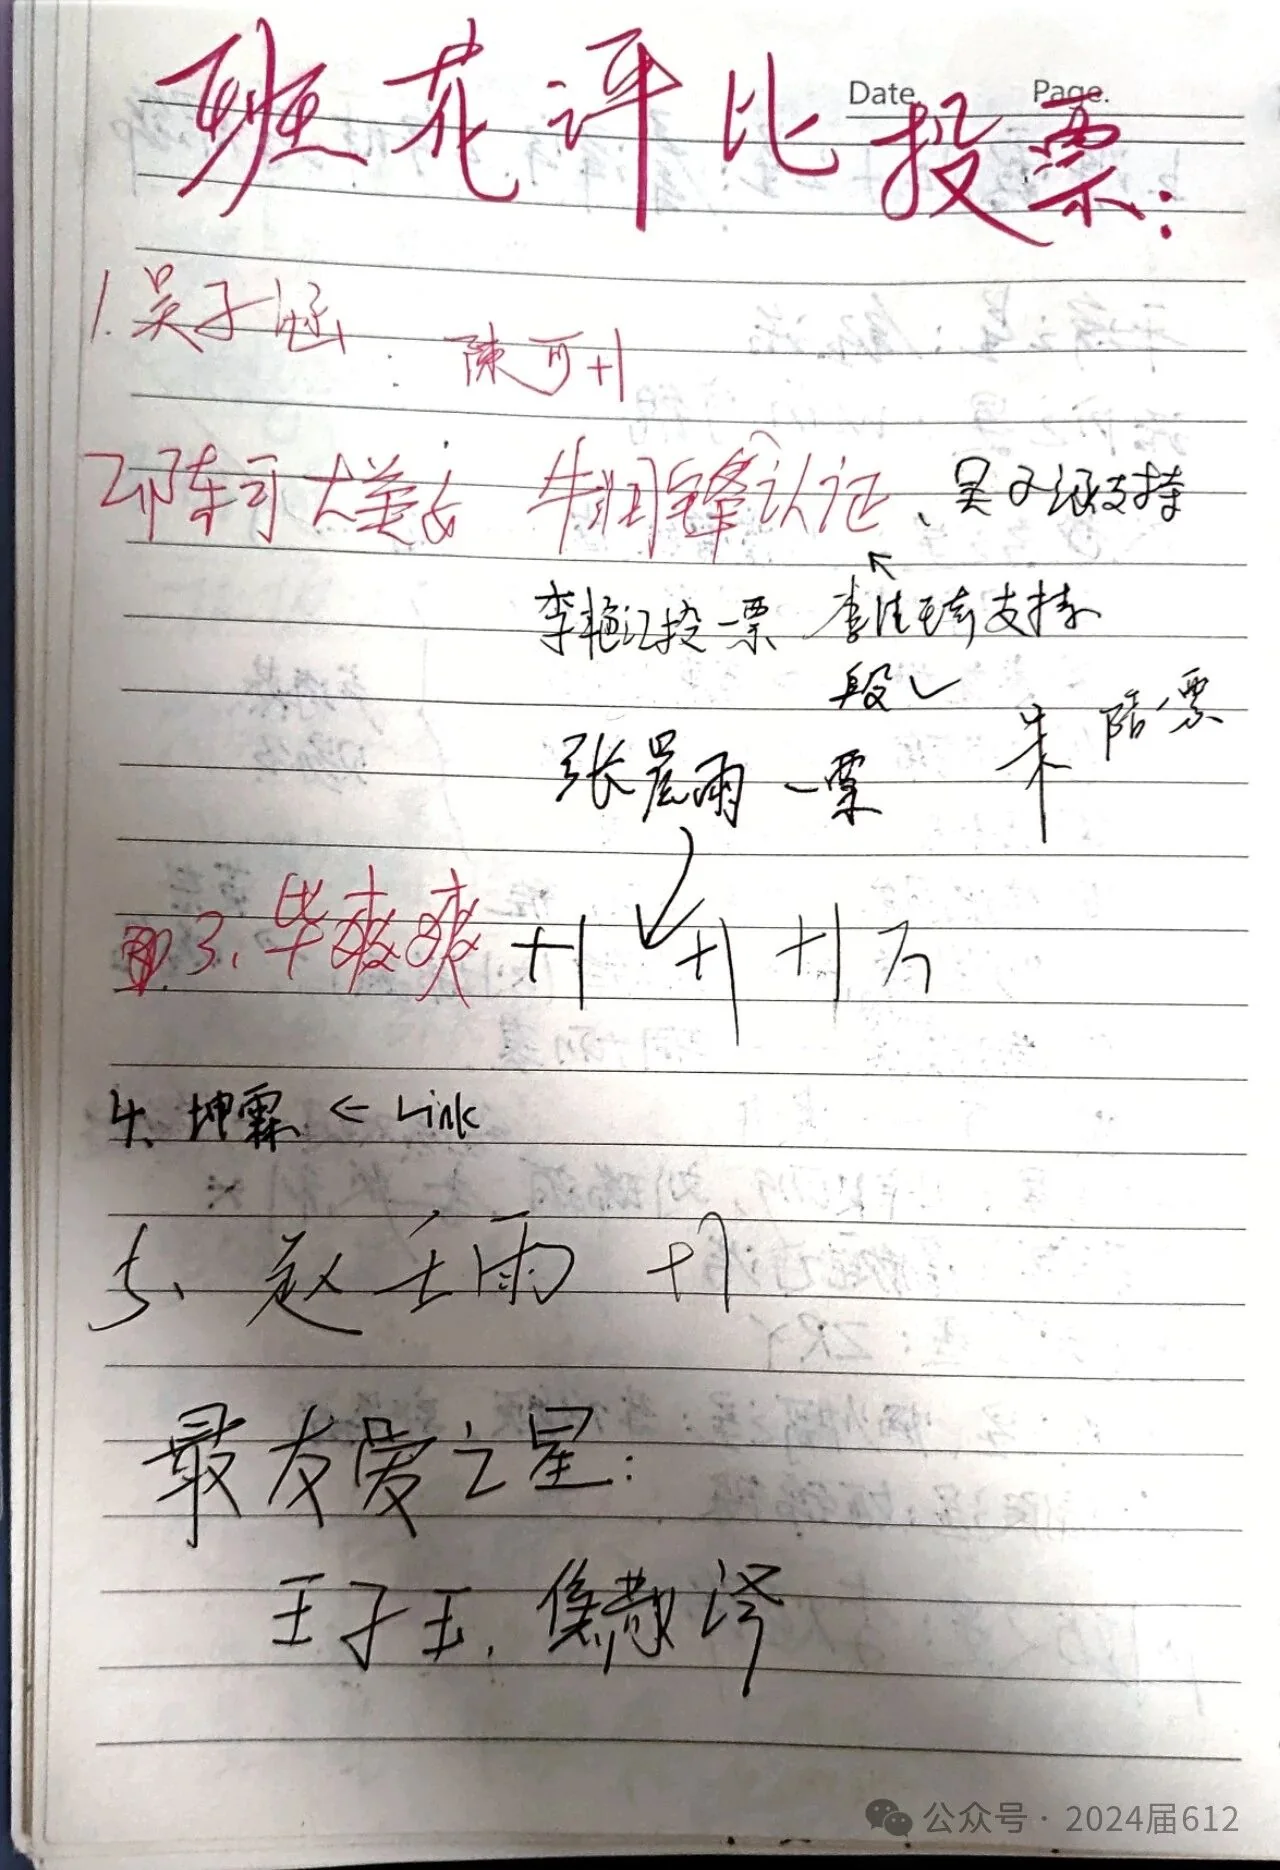 Date. Page.
班花评比投票:
1.吴子涵
陳可+1
2.陈可大美女 牛润锋认证、吴子涵支持
李艳江投一票 李佳琦支持
段✓
张晨雨一票 朱 陪一票
3、毕爽爽 +1 +1 +1万
4、坤霖 ← Link
5、赵壬雨 +1
最友爱之星:
王子玉、侯懿泽
公众号·2024届612